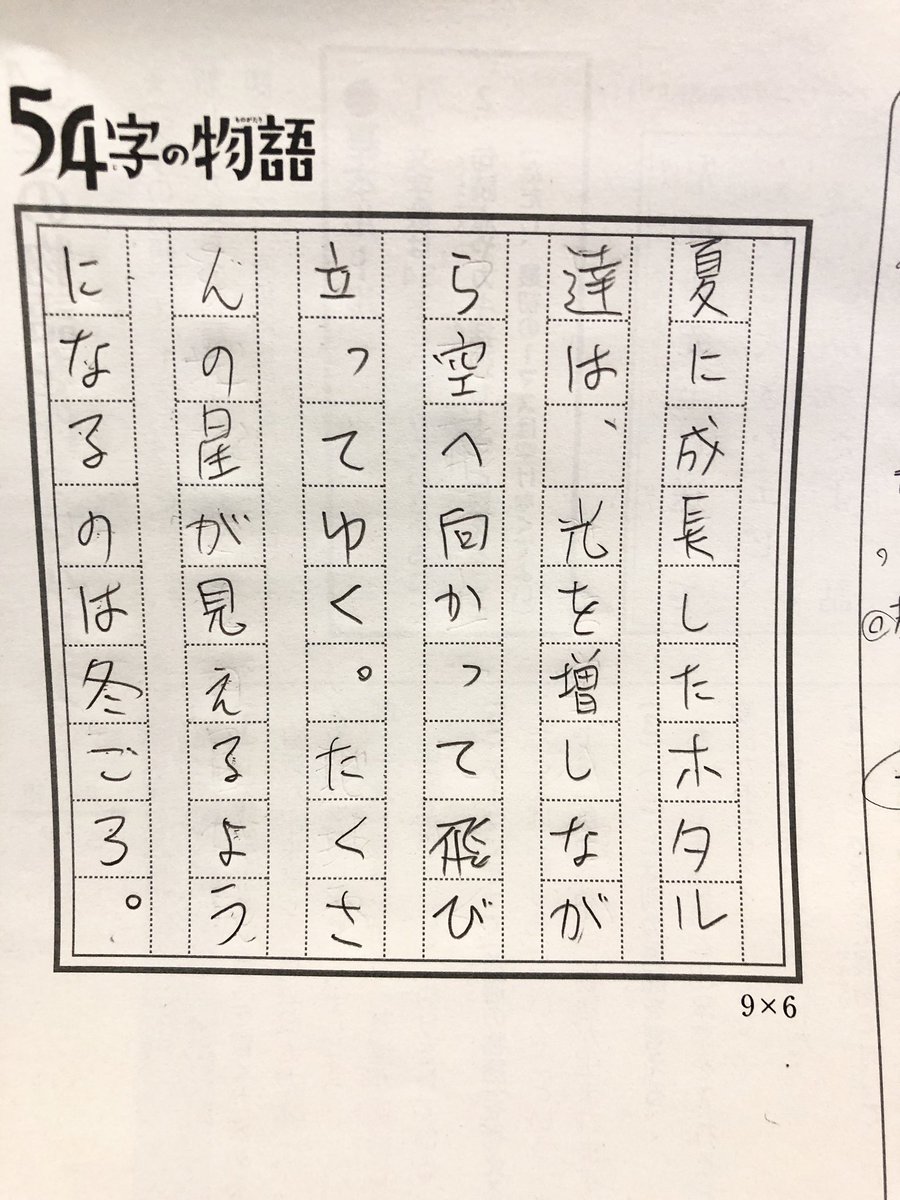 54字の物語
ものがたり
夏に成長したホタル
達は、光を増しなが
ら空へ向かって飛び
立ってゆく。たくさ
んの星が見えるよう
になるのは冬ごろ。
9×6